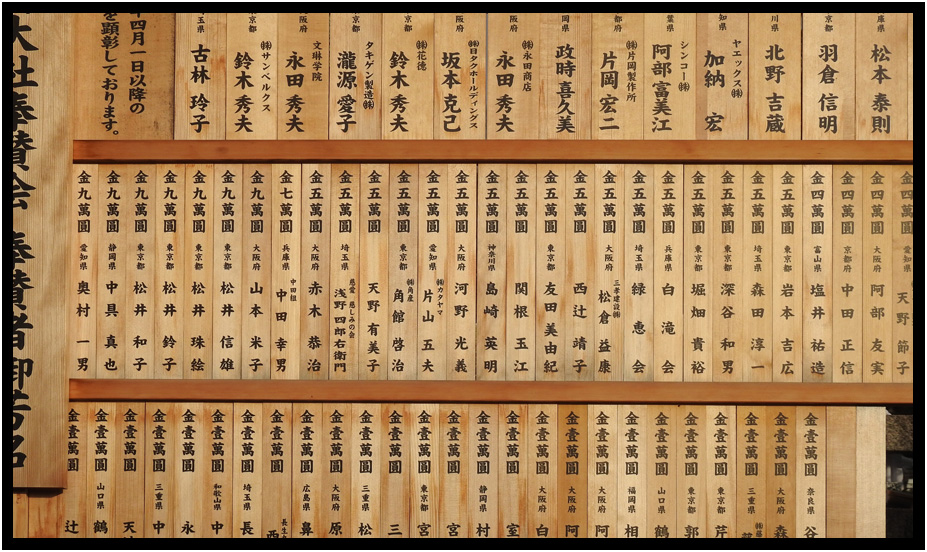 庫県 松本 泰則
京都 羽倉 信明
川県 北野 吉蔵
知県 ヤエックス㈱ 加納 宏
葉県 シンコー㈱ 阿部 富美江
都府 ㈱片岡製作所 片岡 宏二
岡県 政時 喜久美
阪府 ㈱永田商店 永田 秀夫
阪府 ㈱日タクホールディングス 坂本 克己
京都 ㈱花徳 鈴木 秀夫
京都 タキゲン製造㈱ 瀧源 愛子
阪府 文琳学院 永田 秀夫
京都 ㈱サンベルクス 鈴木 秀夫
玉県 古林 玲子
四月一日以降の
を顕彰しております。
金四萬圓 愛知県 天野 節子
金四萬圓 大阪府 阿部 友実
金四萬圓 京都府 中田 正信
金四萬圓 富山県 塩井 祐造
金五萬圓 東京都 岩本 吉広
金五萬圓 埼玉県 森田 淳一
金五萬圓 東京都 深谷 和男
金五萬圓 東京都 堀畑 貴裕
金五萬圓 兵庫県 白滝会
金五萬圓 埼玉県 緑恵会
金五萬圓 大阪府 三孝建設㈱ 松倉 益康
金五萬圓 兵庫県 西辻 靖子
金五萬圓 東京都 友田 美由紀
金五萬圓 東京都 関根 玉江
金五萬圓 神奈川県 島崎 英明
金五萬圓 大阪府 河野 光義
金五萬圓 愛知県 ㈱カタヤマ 片山 五夫
金五萬圓 東京都 ㈱角産 角館 啓治
金五萬圓 埼玉県 天野 有美子
金五萬圓 埼玉県 慈愛 慈しみの会 浅野 四郎右衛門
金五萬圓 大阪府 赤木 恭治
金七萬圓 兵庫県 中田組 中田 幸男
金九萬圓 大阪府 山本 米子
金九萬圓 東京都 松井 信雄
金九萬圓 東京都 松井 珠絵
金九萬圓 東京都 松井 鈴子
金九萬圓 東京都 松井 和子
金九萬圓 静岡県 中具 真也
金九萬圓 愛知県 奥村 一男
金壹萬圓 奈良県 谷
金壹萬圓 大阪府 森
金壹萬圓 三重県
金壹萬圓 東京都 芹
金壹萬圓 東京都 郭
金壹萬圓 山口県 鶴
金壹萬圓 福岡県 相
金壹萬圓 大阪府 阿
金壹萬圓 大阪府 阿
金壹萬圓 大阪府 白
金壹萬圓 室
金壹萬圓 静岡県 村
金壹萬圓 宮
金壹萬圓 東京都 宮
金壹萬圓 三
金壹萬圓 三重県 松
金壹萬圓 大阪府 原
金壹萬圓 広島県 鼻
金壹萬圓 長生 西
金壹萬圓 埼玉県 長
金壹萬圓 和歌山県 中
金壹萬圓 永
金壹萬圓 三重県 中
金壹萬圓 天
金壹萬圓 山口県 鶴
金壹萬圓 辻
大社奉賛会 奉賛者御芳名